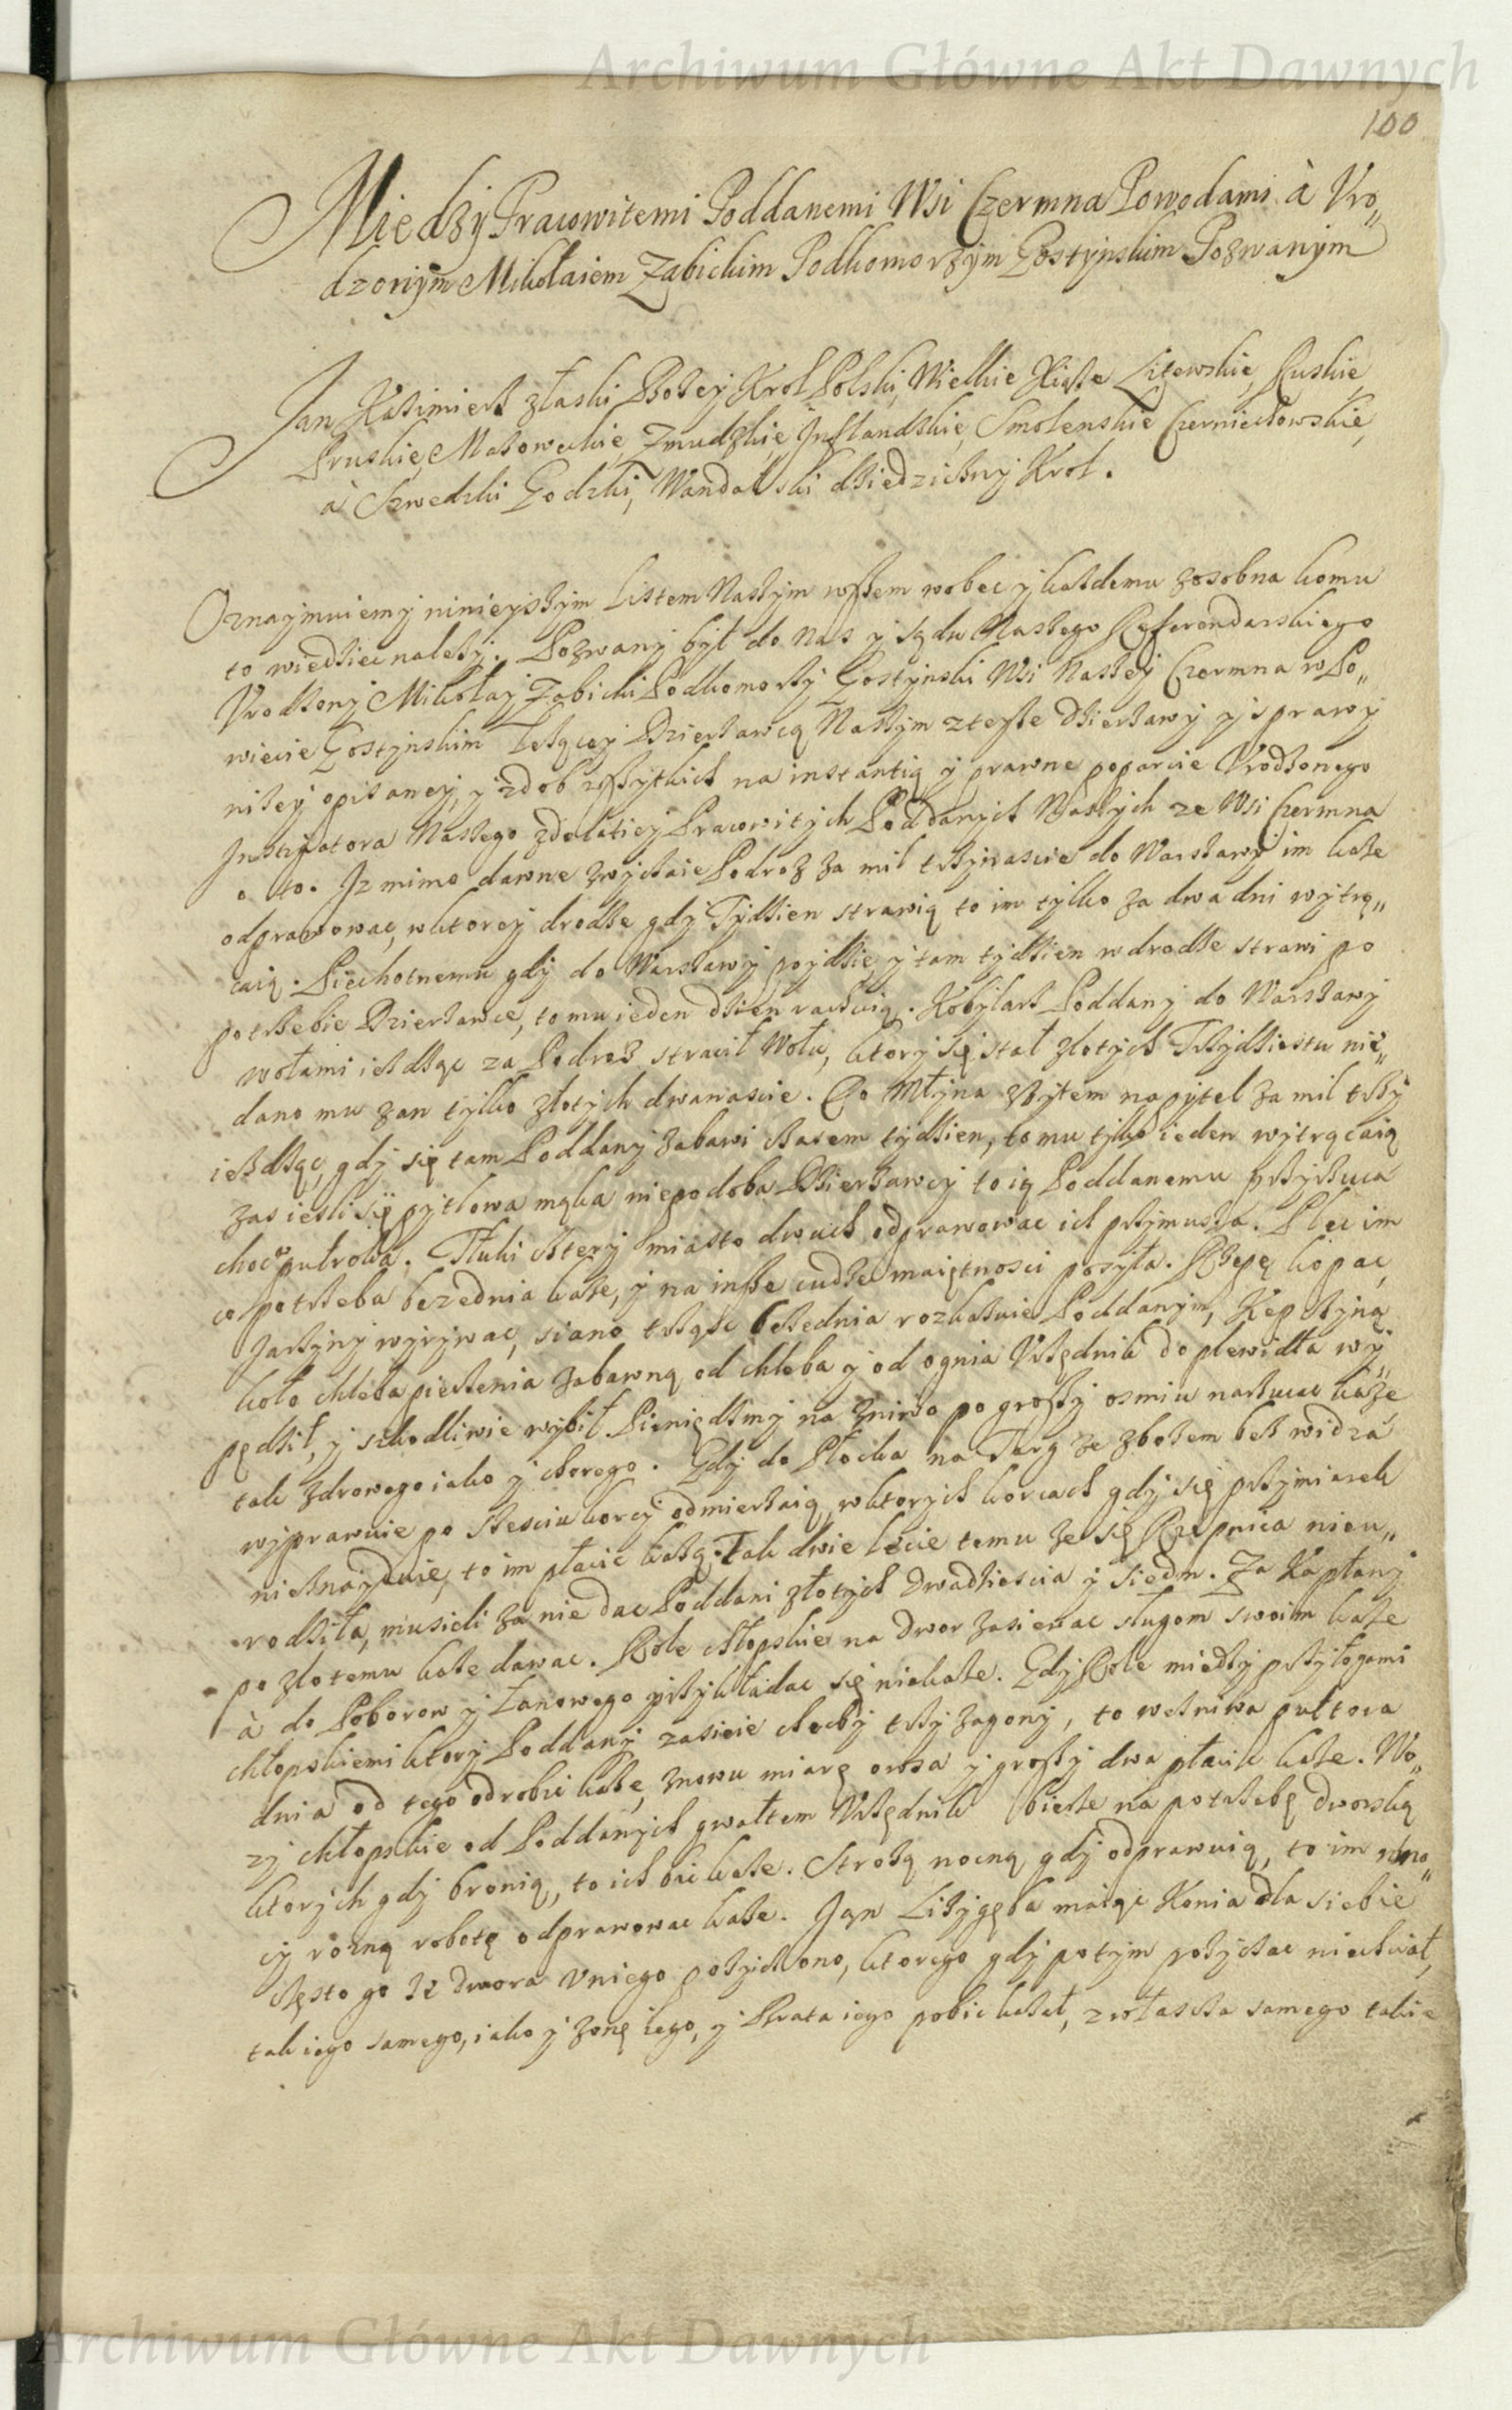 Archiwum Główne Akt Dawnych
100
Między Pracowitemi Poddanemi Wsi Czermna Powodami à Vro„
dzonym Mikołaiem Ząbickim Podkomorzym Gostynskim Pozwanym
Jan Kazimierz z łaski Bozey Krol Polski, Wielkie Xiąże Litewskie, Ruskie,
Pruskie, Mazowieckie, Zmudzkie, Inflandskie, Smolenskie Czerniechowskie,
à Szwedzki Godzki, Wandalski dziedziczny Krol.
Oznaymuiemy ninieyszym Listem Naszym wszem wobec y kazdemu zosobna komu
to wiedziec nalezy. Pozwany był do Nas y sądu Naszego Referendarskiego
Vrodzony Mikołay Ząbicki Podkomorzy Gostynski Wsi Naszey Czermna w Po„
wiecie Gostynskim lezącey Dzierzawcą Naszym z teyze dzierzawy y sprawy
nizey opisaney, y zdob wszytkich na instantią y prawne poparcie Vrodzonego
Instigatora Naszego z delatiey Pracowitych Poddanych Naszych ze Wsi Czermna
o to. Iz mimo dawne zwyczaie Podroz za mil trzynascie do Warszawy im kaze
odprawowac, w ktorey drodze gdy Tydzien strawią to im tylko za dwa dni wytrą„
caią. Piechotnemu gdy do Warszawy poydzie, y tam tydzien w drodze strawi po
potrzebie Dzierzawce, to mu ieden dzien rachuią. Kobylarz Poddany do Warszawy
wołami iezdząc za Podroz stracił Wołu, ktory się stał złotych Trzydziestu nie„
dano mu zan tylko złotych dwanascie. Do Młyna z zytem na pytel za mil trzy
iezdząc, gdy się tam Poddany zabawi czasem tydzien, to mu tylko ieden wytrącaią
zas iesli się pytlowa mąka niepodoba Dzierzawcy to ią Poddanemu przyrzuca
choc putrowa. Tłuki cztery miasto dwuch odprawowac ich przymusza. Plec im
co potrzeba bezednia kaze, y na insze cudze maiętnosci posyła. Rzepę kopac,
Jarzyny wyrywac, siano trząsc bezednia rozkazuie Poddanym, Kępczyną
koło chleba pieczenia zabawną od chleba y od ognia Vrzędnik do plewidła wy„
pędził, y szkodliwie wybił. Pieniędzmy na zniwo po groszy osmiu narzucac kaze
tak zdrowego iako y chorego. Gdy do Płocka na Targ ze zbozem bez widza
wyprawuie po szesciu korcy odmierzaią w ktorych korcach gdy się przymiarek
nieznayduie, to im płacic kazą. Tak dwie lecie temu ze się Rzepnica nieu„
rodziła, musieli za nie dac Poddani złotych dwadziescia y siedm. Za Kapłany
po złotemu kaze dawac. Role chłopskie na dwor zasiewac sługom swoim kaze
à do Poborow y Łanowego przykładac się niekaze. Gdy Role miedzy przyłogami
chłopskiemi ktory Poddany zasieie chocby trzy zagony, to wezniwa pułtora
dnia od tego odrobic kaze, znowu miarę owsa y groszy dwa płacic kaze. Wo„
zy chłopskie od Poddanych gwałtem Vrzędnik bierze na potrzebę dworską
ktorych gdy bronią, to ich bic kaze. Strozą nocną gdy odprawuią, to im w no„
cy rozną robotę odprawowac kaze. Jan Lizygęba maiąc Konia dla siebie
często go ze dwora v niego pozyczono, ktorego gdy potym pozyczac niechciał,
tak iego samego, iako y zonę iego, y Brata iego pobic kazał, zwłaszcza samego takie
Archiwum Główne Akt Dawnych